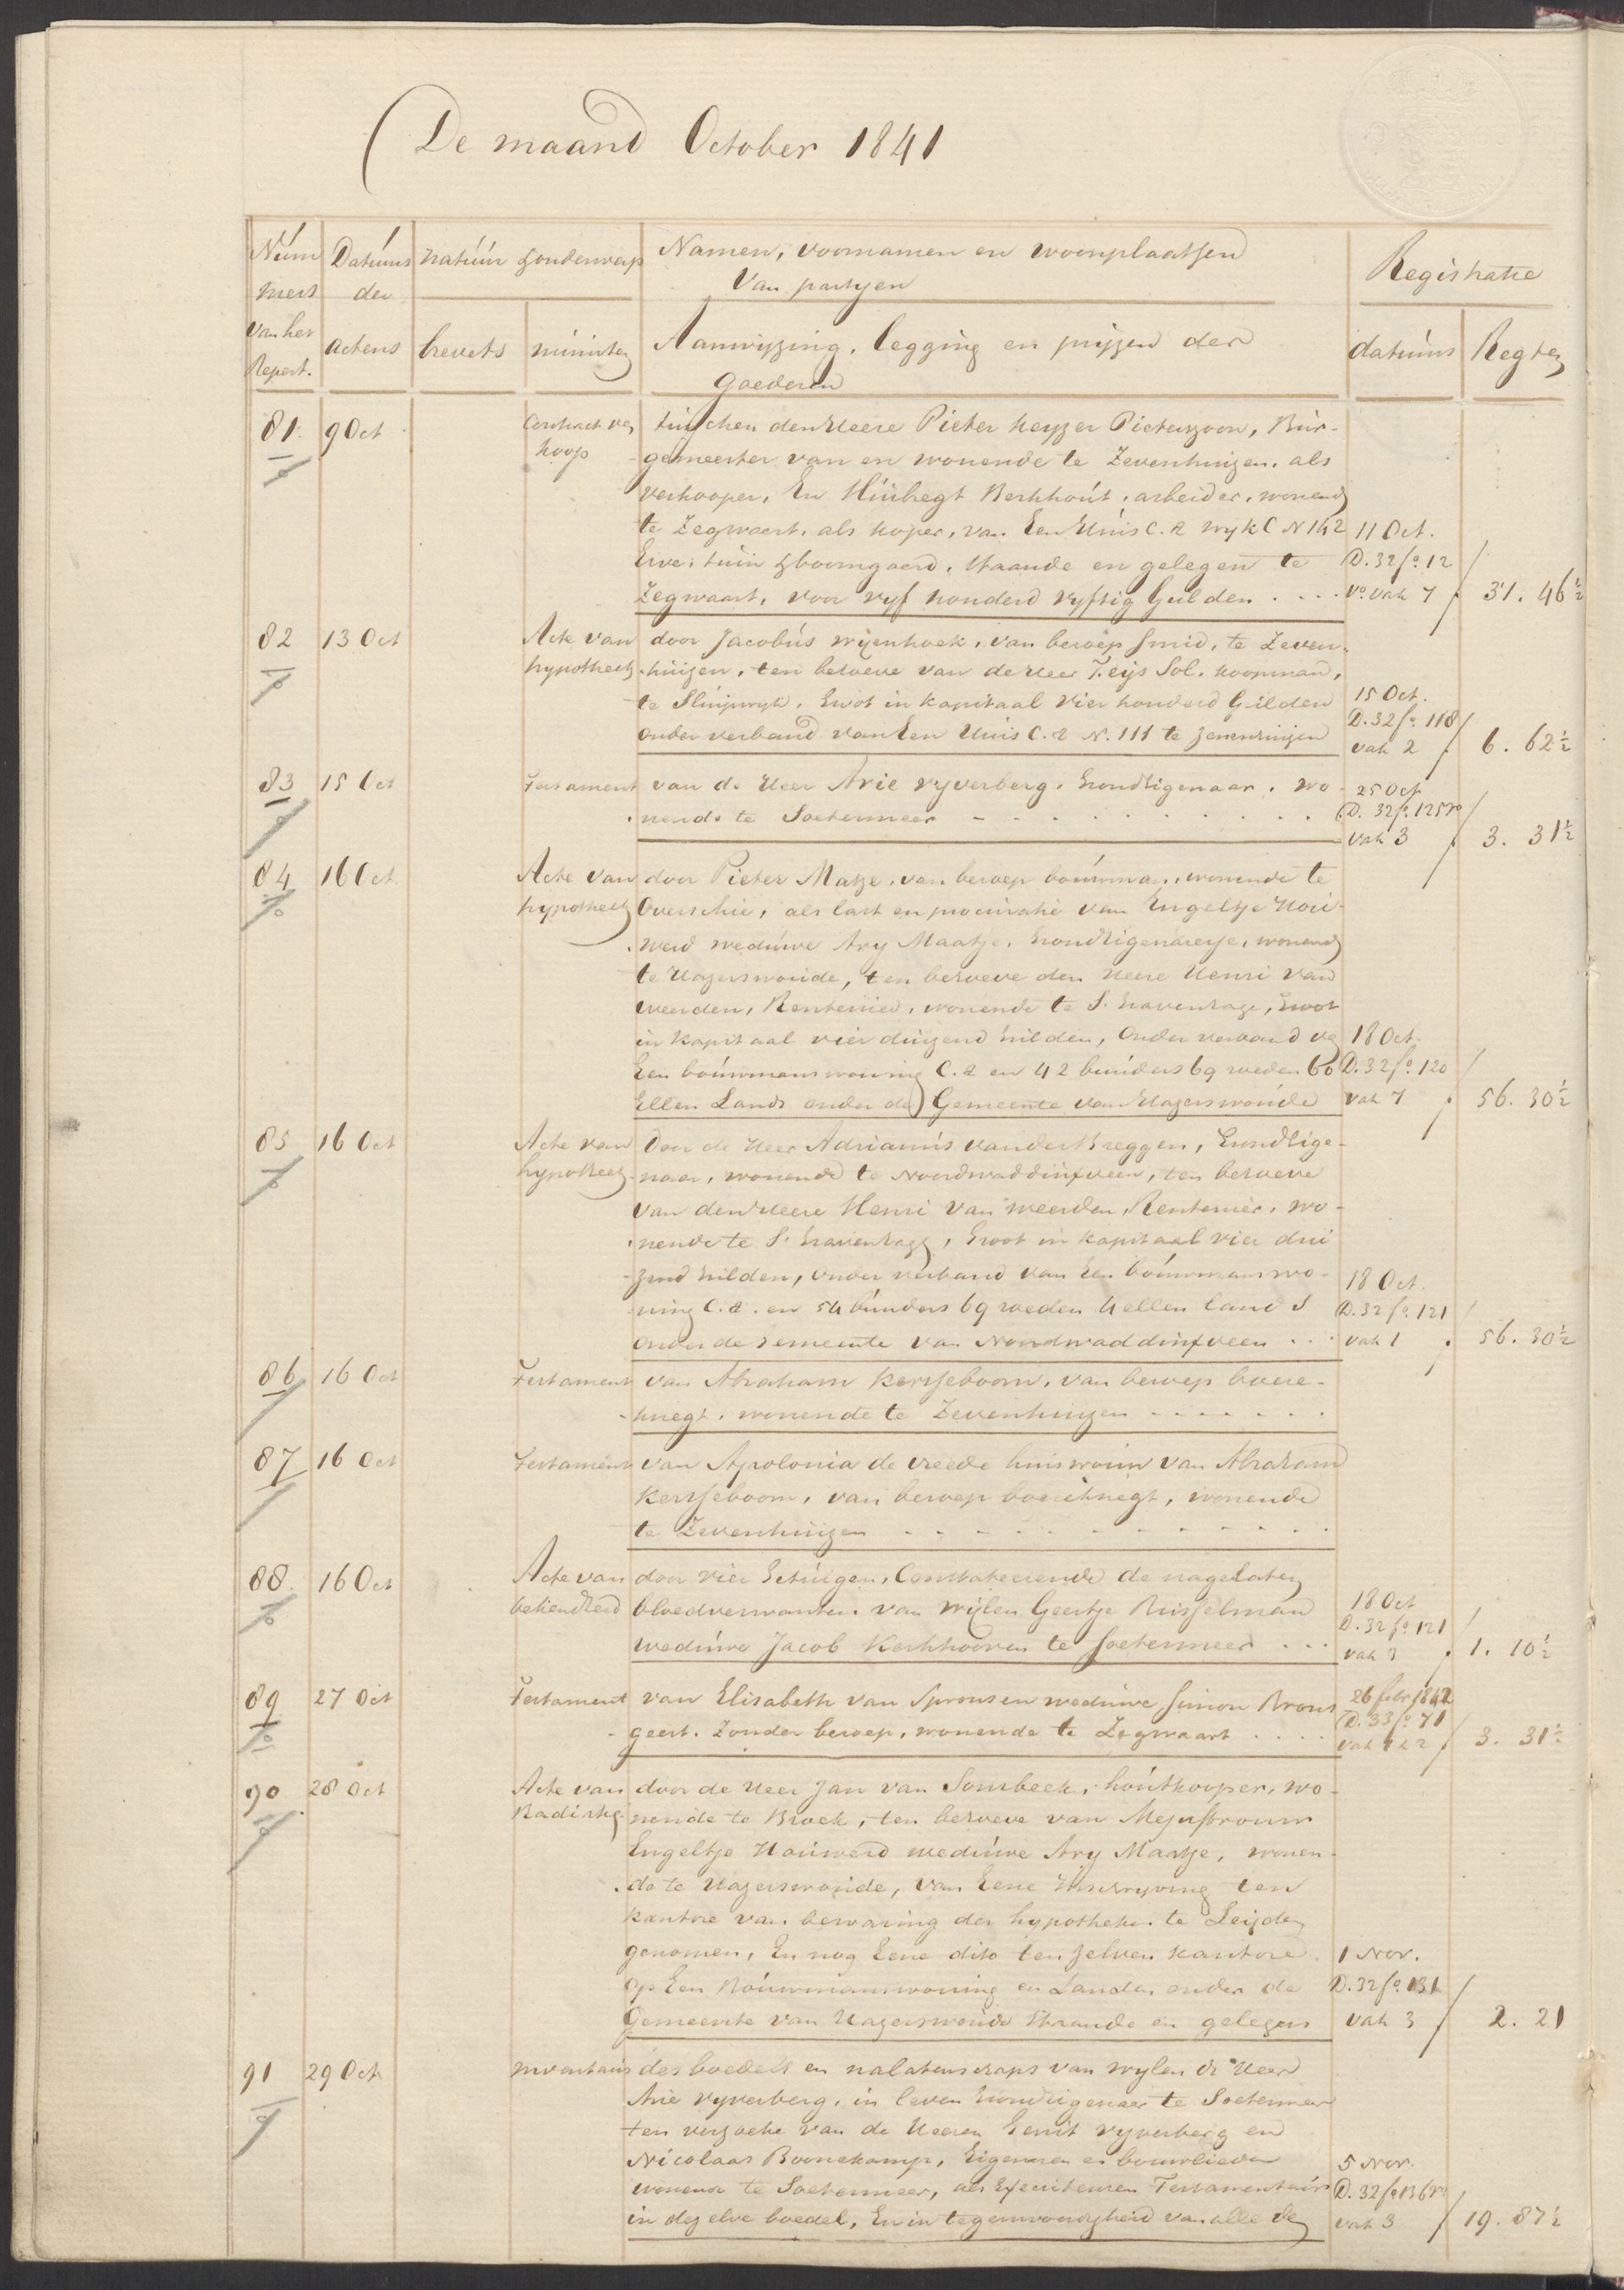 De maand October 1841
Num Datums natuur & onderwerp Namen, voornamen en woonplaatsen Registratie
mers der Van partyen
van het actens brevets minuten Aanwijzing, legging en prijzen der datums Regten
Repert. goederen
81. 9 Oct Contract van tusschen den Heere Pieter Keyzer Pieterszoon, Bur-
koop gemeester van en wonende te Zevenhuizen, als
verkooper, En Huibregt Berkhout, arbeider, wonende
te Zegwaart, als koper, van Een Huis C. a wyk C N 142 11 Oct.
Erve, tuin & boomgaard, staande en gelegen te D. 32 fo. 12
Zegwaart, voor vyf honderd vyftig Gulden . . . . vo. vak 7 31. 46½
82 13 Oct Acte van door Jacobus Wijenhoek, van beroep smid, te Zeven-
hypotheek huizen, ten behoeve van de Heer T. eijs Sol. koopman,
te Sluipwyk, Groot in kapitaal vier honderd Gulden 15 Oct.
onder verband van Een Huis C. a N. 111 te Zevenhuizen D. 32 fo. 118
vak 2 6. 62½
83 15 Oct Testament van de Heer Arie Vyverberg, Grondeigenaar, wo- 25 Oct
nende te Soetermeer D. 32 fo. 125 vo
vak 3 3. 31½
84 16 Oct Acte van door Pieter Matze, van beroep bouwman, wonende te
hypotheek Overschie, als last en procuratie van Engeltje Hou-
werd weduwe Ary Maatje, Grondeigenaresse, wonende
te Hazerswoude, ten behoeve den Heere Henri van
Weerden, Rentenier, wonende te S. Gravenhage, Groot
in kapitaal vier duizend Gulden, Onder verband van 18 Oct.
Een bouwmanswoning C. a en 42 bunders 69 roeden 66 D. 32 fo. 120
Ellen Lands onder de Gemeente van Hazerswoude vak 7 56. 30½
85 16 Oct Acte van Door de Heer Adrianus van der Breggen, Grondeige-
hypotheek naar, wonende te Noordwaddinxveen, ten behoeve
van den Heere Henri van Weerden, Rentenier, wo-
nende te S. Gravenhage, Groot in kapitaal vier dui
zend Gulden, Onder verband van Een bouwmanswo- 18 Oct.
ning C. a. en 54 bunders 69 roeden 4 ellen land s D. 32 fo. 121
onder de Gemeente van Noordwaddinxveen . . . vak 1 56. 30½
86 16 Oct Testament van Abraham Kersseboom, van beroep boere-
knegt, wonende te Zevenhuizen . . . . . . .
87 16 Oct Testament van Apolonia de Vreede huisvrouw van Abraham
Kersseboom, van beroep boereknegt, wonende
te Zevenhuizen . . . . . . . . . . . .
88. 16 Oct Acte van door vier Getuigen, Constateerende de nagelaten
bekendheid bloedverwanten van wijlen Geertje Russelman 18 Oct
weduwe Jacob Kerkhoven te Soetermeer . . . D. 32 fo. 121
vak 3 1. 10½
89 27 Oct Testament van Elisabeth van Spronsen weduwe Simon Brons 26 febr 1842
geest. Zonder beroep, wonende te Zegwaart . . . . D. 33 fo. 71
vak 1 & 2 3. 31½
90 28 Oct Acte van door de Heer Jan van Sonsbeek, houtkooper, wo-
Radiatie nende te Broek, ten behoeve van Mejufvrouw
Engeltje Houwerd weduwe Ary Maatje, wonen-
de te Hazerswoude, van Eene Inschryving ten
kantore van bewaring der hypotheken te Leijden
genomen, En nog Eene dito ten zelven kantore 1 Nov.
op Een Bouwmanswoning en Landen onder de D. 32 fo. 131
Gemeente van Hazerswoude Staande en gelegen vak 3 2. 21
91 29 Oct Inventaris des boedels en nalatenschaps van wylen de Heer
Arie Vyverberg, in leven Grondeigenaar te Soetermeer
ten verzoeke van de Heeren Gerrit Vyverberg en
Nicolaas Boonekamp, Eigenaren en bouwlieden 5 Nov.
wonende te Soetermeer, als Executeuren Testamentair D. 32 fo 136 vo
in dezelve boedel, En in tegenwoordigheid van alle de vak 3 19. 87½